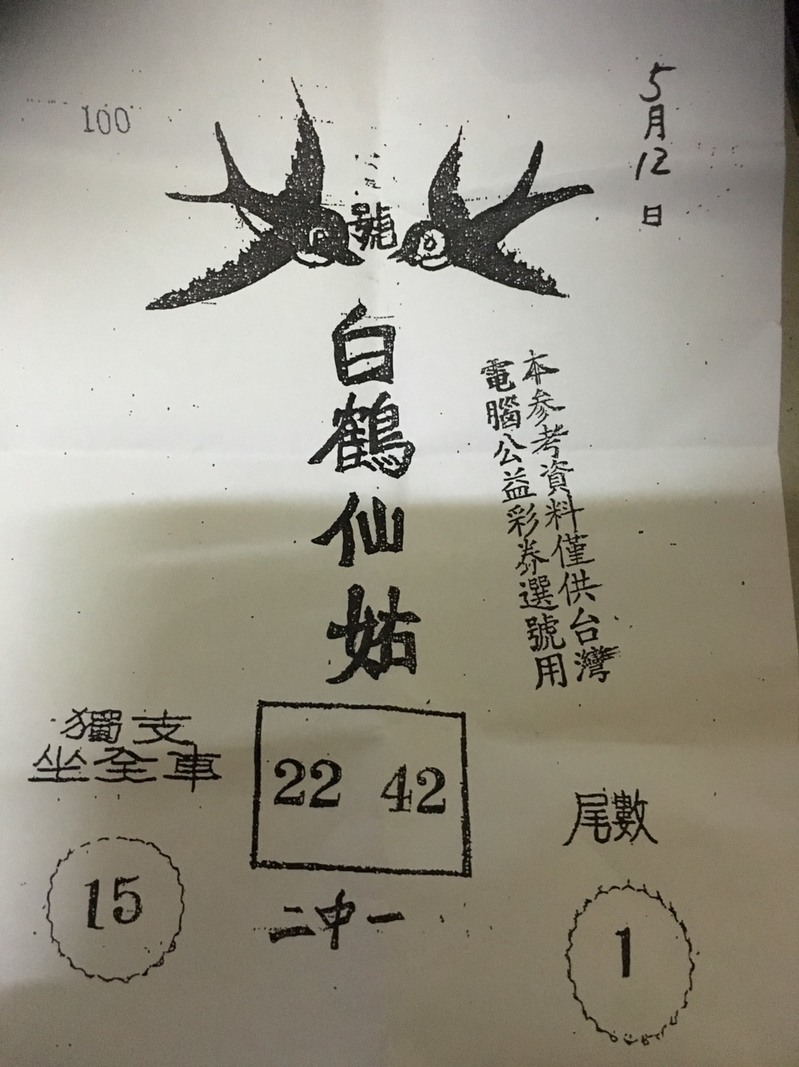 100
5月12日
號
白鶴仙姑
本參考資料僅供台灣
電腦公益彩券選號用
獨支
坐全車
22 42
尾數
15
二中一
1